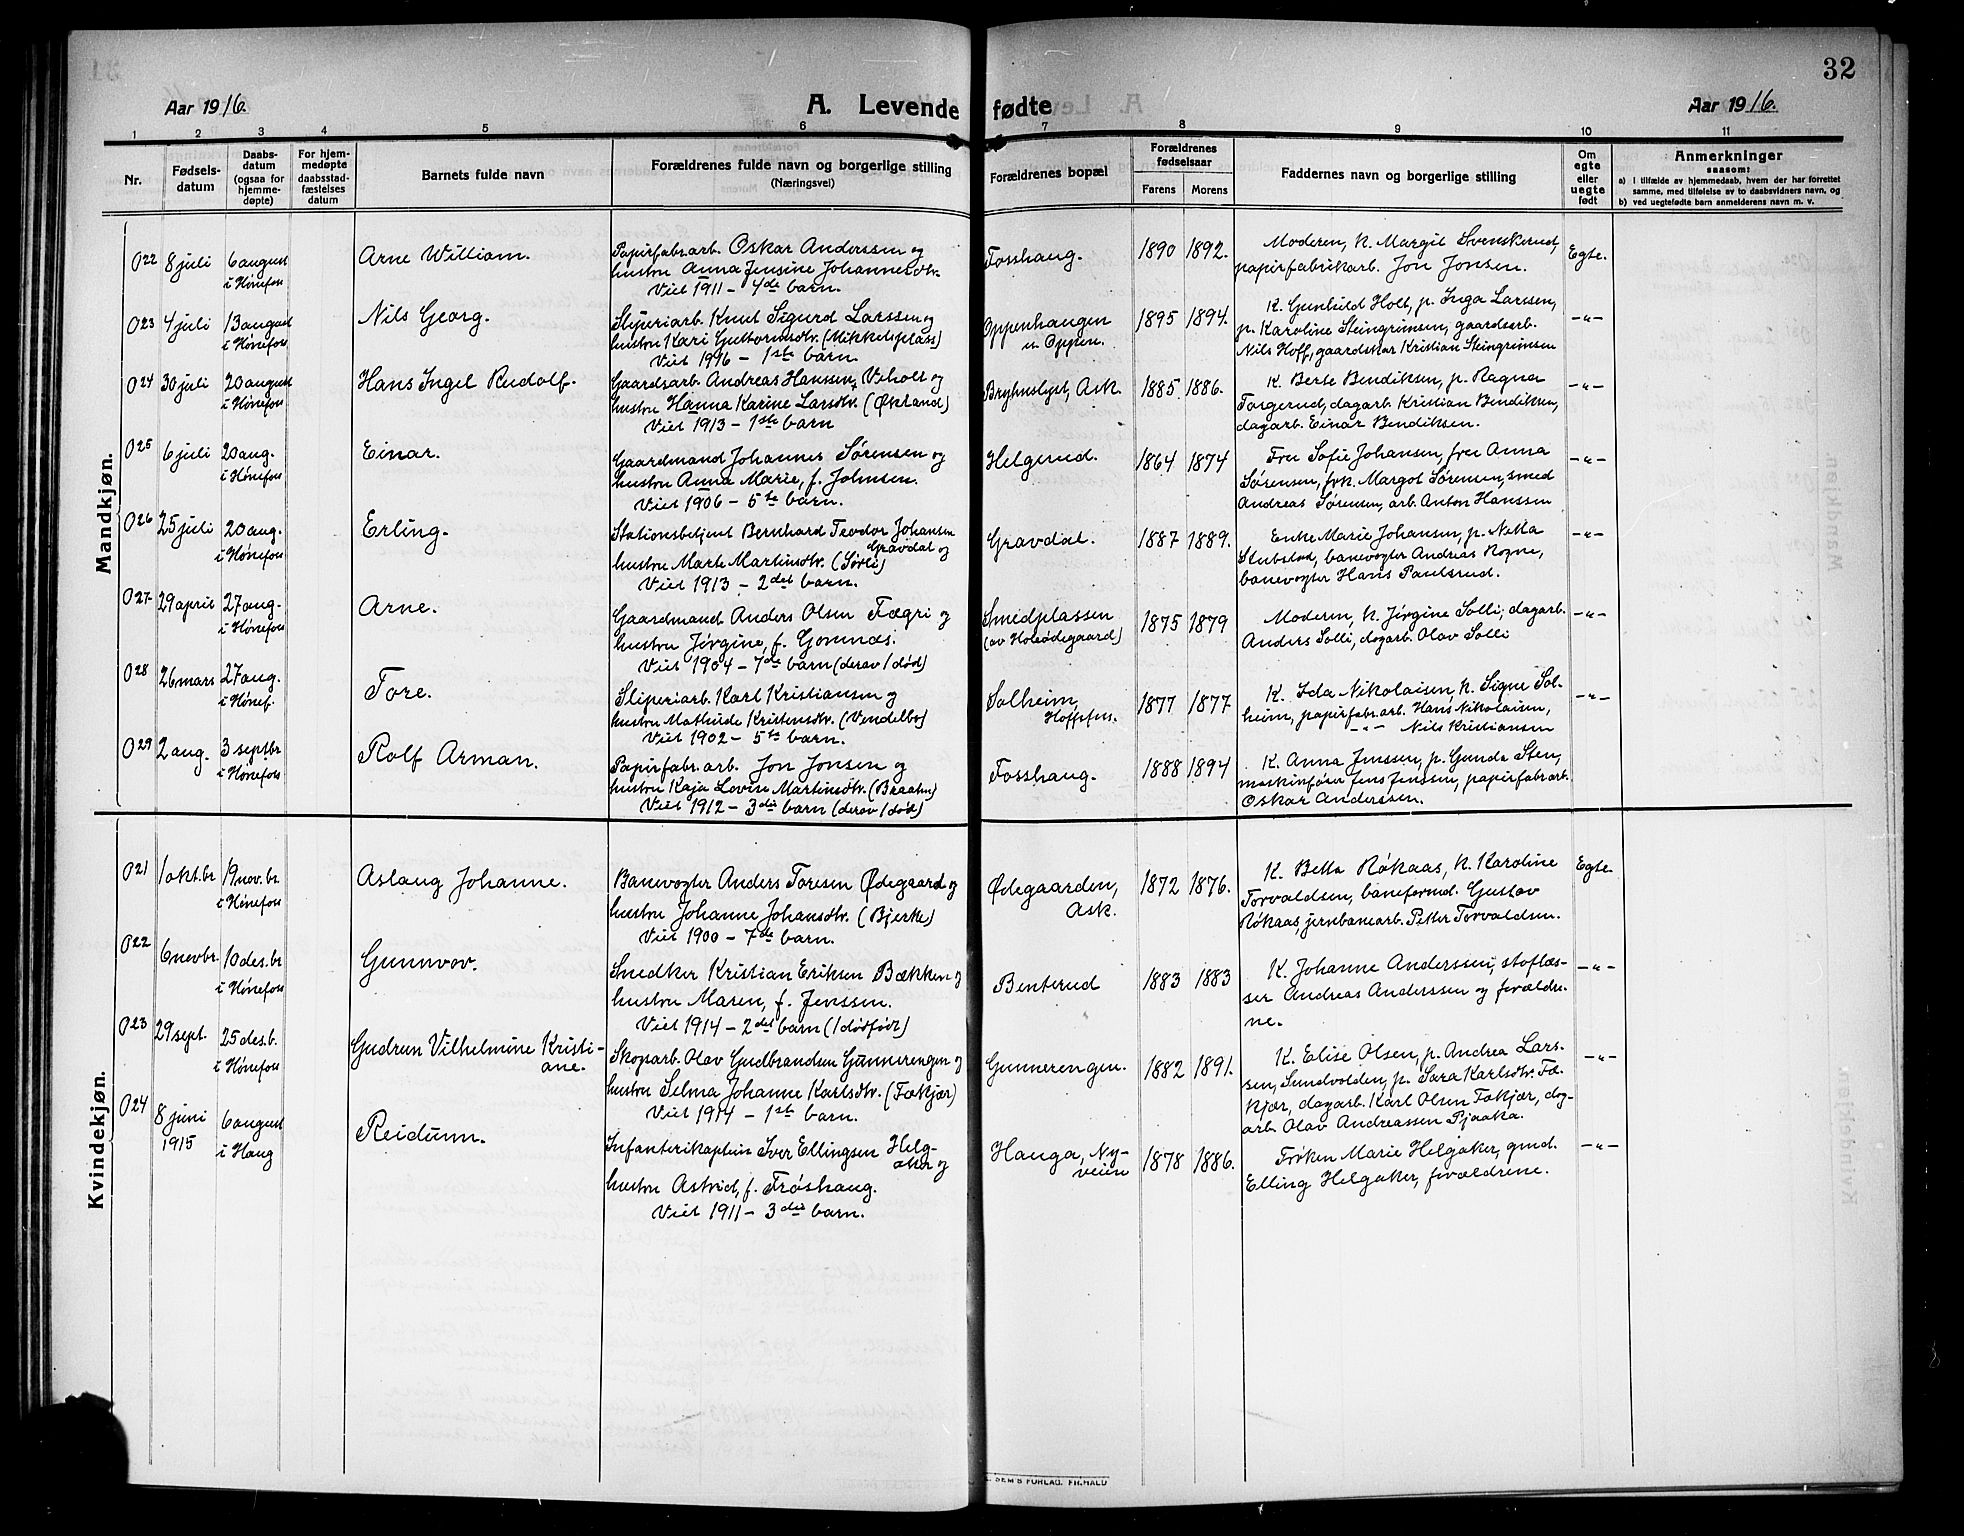 32
Aar 1916.
A. Levende fødte
Aar 1916.
1 2 3 4 5 6 7 8 9 10 11
Nr.
Fødsels-
datum
Daabs-
datum
(ogsaa for
hjemme-
døpte)
For hjem-
medøpte
daabsstad-
fæstelses
datum
Barnets fulde navn
Forældrenes fulde navn og borgerlige stilling
(Næringsvei)
Forældrenes bopæl
Forældrenes
fødselsaar
Farens Morens
Faddernes navn og borgerlige stilling
Om
egte
eller
uegte
født
Anmerkninger
saasom:
a) i tilfælde av hjemmedaab, hvem der har forrettet
samme, med tilføielse av to daabsvidners navn, og
b) ved uegtefødte barn anmelderens navn m. v.
Mandkjøn.
O22 8 juli 6 august
i Hønefoss
Arne William.
Papirfabr.arb. Oskar Anderssen og
hustru Anna Jensine Johannesdtr.
Viet 1911 – 4de barn.
Fosshaug.
1890 1892.
Moderen, k. Margit Svenskerud,
papirfabrikarb. Jon Jonsen.
Egte.
O23 4 juli 13 august
i Hønefoss
Nils Georg.
Sliperiarb. Knut Sigurd Larssen og
hustru Kari Guttormsdtr. (Mikkelsplass)
Viet 1916 – 1ste barn.
Oppenhaugen
u. Oppen.
1895 1894.
K. Gunhild Holt, p. Inga Larssen,
p. Karoline Steingrimsen, gaardsarb.
Nils Hoff, gaardskar Kristian Steingrimsen
-"-
O24 30 juli 20 august
i Hønefoss
Hans Ingel Rudolf.
Gaardsarb. Andreas Hanssen Veholt og
hustru Hanna Karine Larsdtr. (Økland)
Viet 1913 – 1ste barn
Bryhnslyst, Ask.
1885. 1886.
K. Berte Bendiksen, p. Ragna
Torgerud, dagarb. Kristian Bendiksen,
dagarb. Einar Bendiksen.
-"-
O25 6 juli 20 aug.
i Hønefoss
Einar.
Gaardmand Johannes Sørensen og
hustru Anna Marie, f. Johnsen.
Viet 1906 – 5te barn.
Helgerud.
1864 1874
Fru Sofie Johansen, fru Anna
Sørensen, frk. Margot Sørensen, smed
Andreas Sørensen, arb. Anton Hanssen
-"-
O26 25 juli 20 aug.
i Hønefoss
Erling.
Stationsbetjent Bernhard Teodor Johansen
Gravdal og
hustru Marte Martinsdtr. (Sørli)
Viet 1913 – 2det barn.
Gravdal.
1887 1889.
Enke Marie Johansen, p. Netta
Stubstad, banevogter Andreas Rogne,
banevogter Hans Paulsrud.
-"-
O27 29 april 27 aug.
i Hønefoss
Arne.
Gaardmand Anders Olsen Fægri og
hustru Jørgine, f. Gomnæs.
Viet 1904 – 7de barn (derav 1 død)
Smedplassen
(av Holeødegaard)
1875 1879
Moderen, k. Jørgine Solli, dagarb.
Anders Solli, dagarb. Olav Solli
-"-
O28 26 mars 27 aug.
i Hønef.
Tore.
Sliperiarb. Karl Kristiansen og
hustru Mathilde Kristensdtr. (Vendelbo)
Viet 1902 – 5te barn.
Solheim,
Hofsfos.
1877 1877
K. Ida Nikolaisen, k. Signe Sol-
heim, papirfabr.arb. Hans Nikolaisen,
-"- Nils Kristiansen
-"-
O29 2 aug. 3 septbr
i Hønefoss
Rolf Arman.
Papirfabr.arb. Jon Jonsen og
hustru Kaja Lovise Martinsdtr. (Braaten)
Viet 1912 – 3die barn (derav 1 død)
Fosshaug.
1888 1894
K. Anna Jenssen, p. Gunda Sten,
maskinfører Jens Jenssen, papirfabr.arb.
Oskar Anderssen.
Kvindekjøn.
O21 1 okt.br 19 nov.br.
i Hønefoss
Aslaug Johanne.
Banevogter Anders Toresen Ødegaard og
hustru Johanne Johansdtr. (Bjerke)
Viet 1900 – 7de barn.
Ødegaarden,
Ask.
1872 1876.
K. Betta Røkaas, k. Karoline
Torvaldsen, baneformd. Gustav
Røkaas, jernbanearb. Petter Torvaldsen.
Egte.
O22 6 novbr. 10 des.br
i Hønefoss
Gunnvor.
Snedker Kristian Eriksen Bækken og
hustru Maren, f. Jenssen.
Viet 1914 – 2det barn (1 dødfødt)
Benterud
1883 1883
K. Johanne Anderssen, stoflæs-
ser Andreas Anderssen og foræld-
ne.
-"-
O23 29 sept. 25 des.b.
i Hønefoss
Gudrun Vilhelmine Kristi-
ane.
Skogarb. Olav Gudbrandsen Gunnerengen og
hustru Selma Johanne Karlsdtr. (Fækjær)
Viet 1914 – 1ste barn.
Gunnerengen.
1882 1891.
K. Elise Olsen, p. Andrea Lars-
sen, Sundvolden, p. Sara Karlsdtr. Fæ-
kjær, dagarb. Karl Olsen Fækjær, dag-
arb. Olav Andreassen Pjaaka.
-"-
O24 8 juni
1915
6 august
i Haug
Reidunn.
Infanterikaptein Iver Ellingsen Helg-
aker og
hustru Astrid, f. Frøshaug.
Viet 1911 – 3die barn.
Hauga, Ny-
veien
1878 1886.
Frøken Marie Helgaker, gmd.
Elling Helgaker, forældrene.
-"-
SEM'S FORLAG. FR.HALD